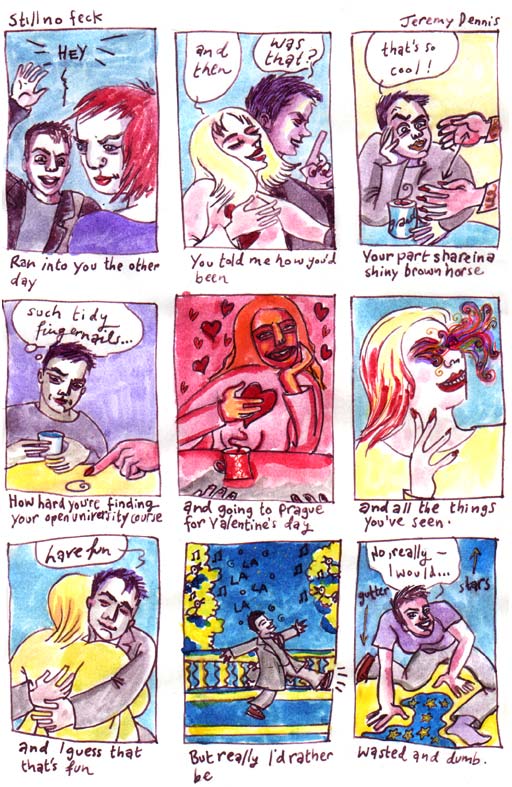 Still no feck
Jeremy Dennis
HEY
Ran into you the other
day
and
then
was
that?
You told me how you'd
been
that's so
cool!
Your part share in a
shiny brown horse
such tidy
fingernails...
How hard you're finding
your open university course
and going to Prague
for Valentine's day
and all the things
you've seen.
have fun
and I guess that
that's fun
LA
LA
LA
LA
But really I'd rather
be
No, really –
I would...
gutter
stars
Wasted and dumb.